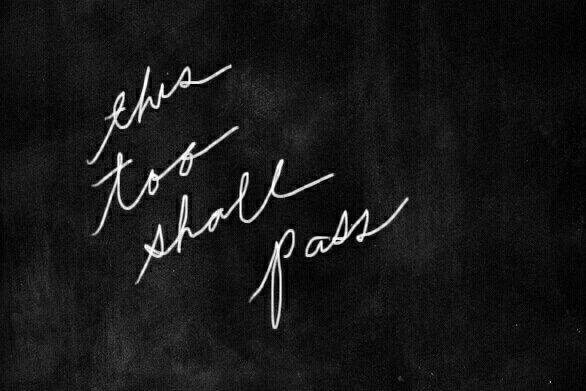 this
too
shall
pass